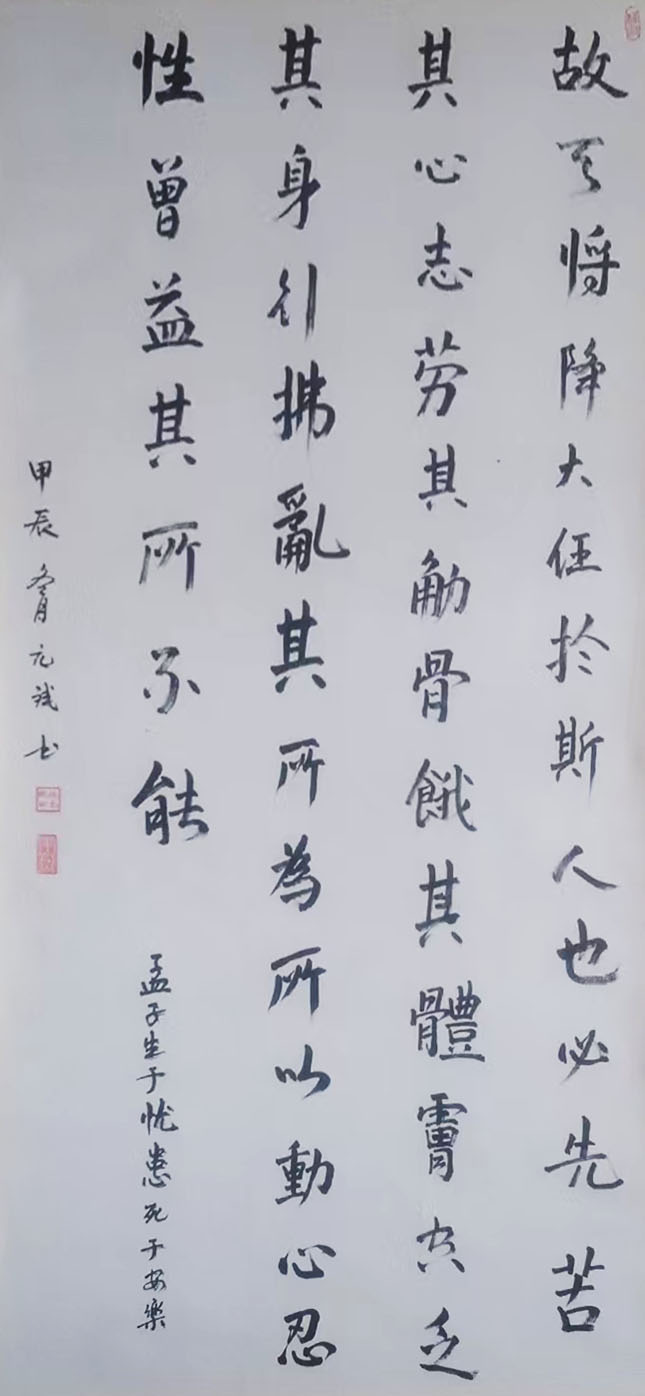 故天将降大任於斯人也必先苦
其心志劳其觔骨餓其體膚空乏
其身行拂亂其所為所以動心忍
性曾益其所不能
孟子生于忧患死于安樂
甲辰冬月元诚书